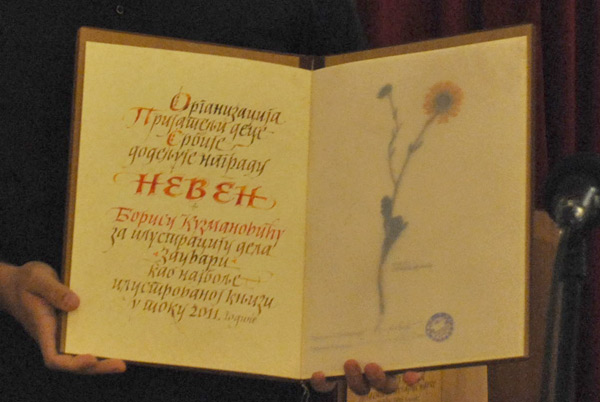 Организација
Пријатељи деце
Србије
додељује награду
НЕВЕН
Борису Кузмановићу
за илустрацију дела
Заувари
као најбоље
илустрованој књизи
у току 2011. године